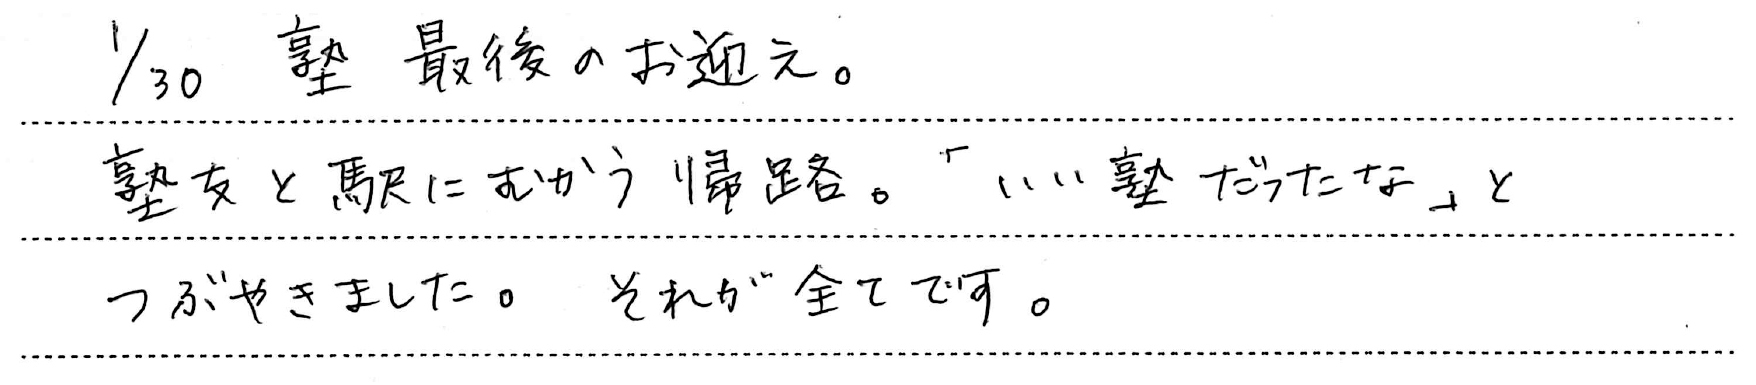 1/30 塾 最後のお迎え。
塾友と駅にむかう帰路。「いい塾だったな」と
つぶやきました。 それが全てです。